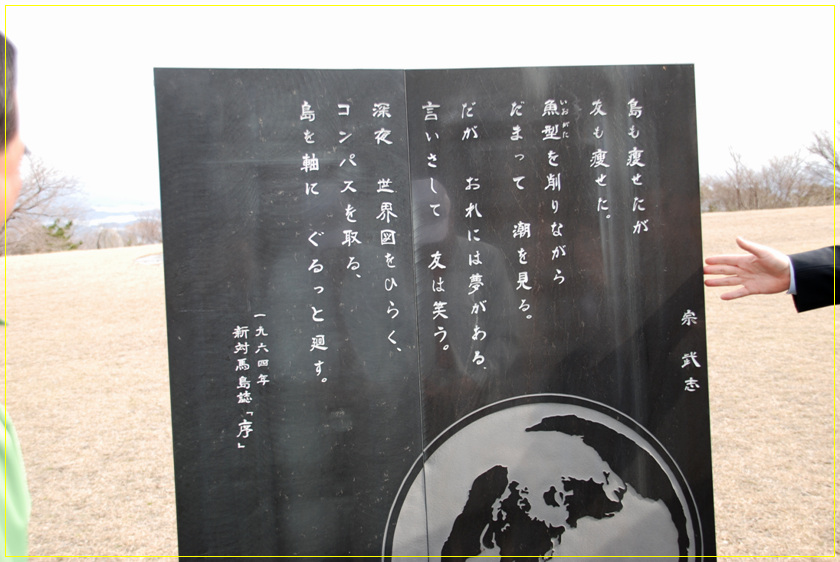 宗 武志
島も瘦せたが
友も瘦せた。
魚型を削りながら
いおがた
だまって 潮を見る。
だが おれには夢がある、
言いさして 友は笑う。
深夜 世界図をひらく、
コンパスを取る、
島を軸に ぐるっと廻す。
一九六四年
新対馬島誌「序」